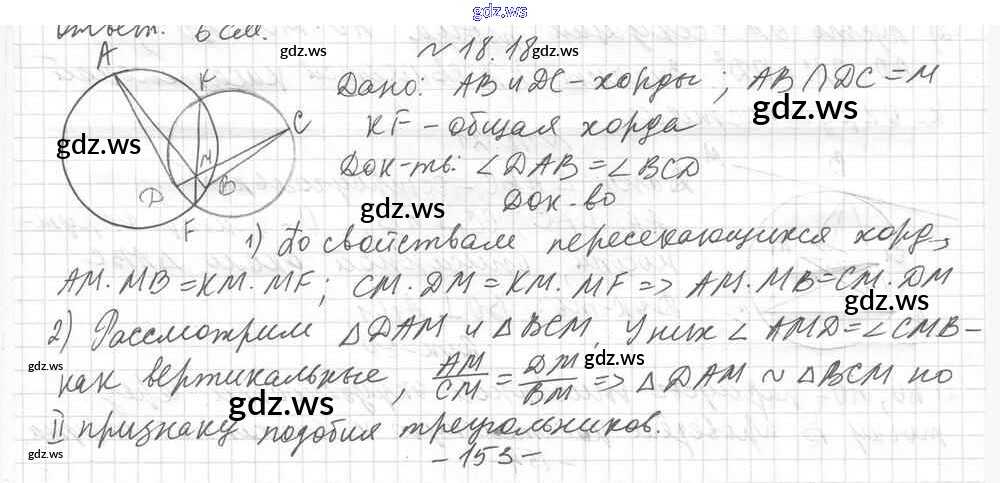 gdz.ws
Ответ. 6 см.
№ 18.18
gdz.ws
A
K
C
M
D
B
F
Дано: AB и DC – хорды; AB ∩ DC = M
gdz.ws
gdz.ws
KF – общая хорда
Док-ть: ∠DAB = ∠BCD
Док-во
gdz.ws
1) По свойствам пересекающихся хорд,
AM · MB = KM · MF; CM · DM = KM · MF => AM · MB = CM · DM
gdz.ws
2) Рассмотрим △DAM и △BCM, У них ∠ AMD = ∠CMB –
как вертикальные, AM/CM = DM/BM => △DAM ~ △BCM по
gdz.ws
gdz.ws
gdz.ws
II признаку подобия треугольников.
– 153 –
gdz.ws
gdz.ws